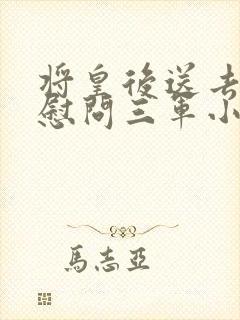 将皇後送去
慰問三軍小
馬志亞